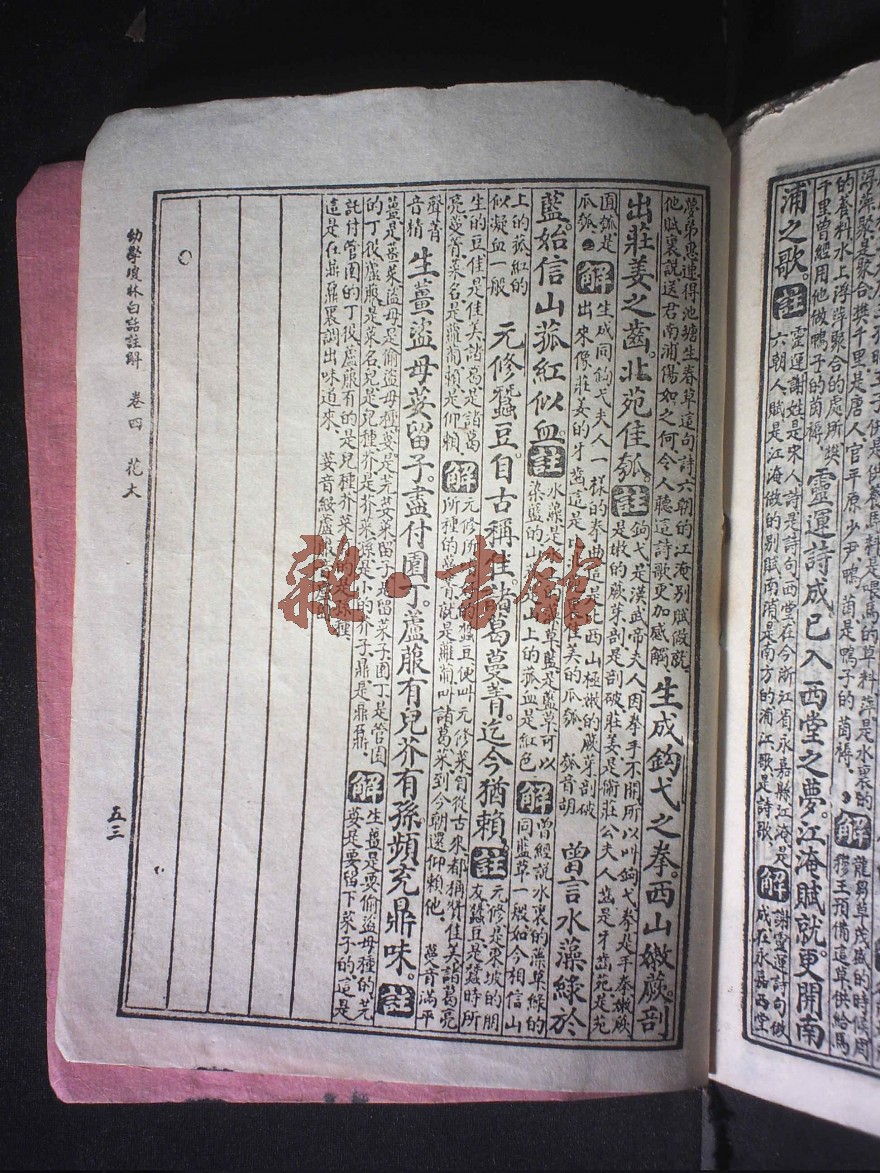 千里曾經用他做鴨子的茵褥
靈運詩成已入西堂之夢。江淹賦就更開南
浦之歌。註
靈運謝姓是宋人詩是詩句西堂在今浙江省永嘉縣江淹是
六朝人賦是江淹做的別賦南浦是南方的浦江歌是詩歌
解
謝靈運詩句做
成在永嘉西堂
夢弟惠連得池塘生春草這句詩六朝的江淹別賦做就
他賦裏說送君南浦傷如之何令人聽這詩歌更加感觸
生成鈎弋之拳。西山嫩蕨。剖
出莊姜之齒。北苑佳瓠。註
鈎弋是漢武帝夫人因拳手不開所以叫鈎弋拳是手拳嫩蕨
是嫩的蕨芽剖是剖破莊姜是衛莊公夫人齒是牙齒苑是苑
囿瓠是
瓜瓠
解
生成同鈎弋夫人一樣的拳曲
西山極嫩的蕨芽剖破
出來像莊姜的牙齒這是
裏佳美的瓜瓠
瓠音胡
曾言水藻綠於
藍。始信山菰紅似血。註
水藻是
草藍是藍草可以
染藍的山
是山上的菰血是紅色
解
曾經說水裏的藻草綠的
同藍草一般如今相信山
上的菰紅的
似凝血一般
元修蠶豆。自古稱佳。諸葛蔓菁。迄今猶賴。註
元修是東坡的朋
友蠶豆是蠶時所
生的豆佳是佳美諸葛是諸葛
亮蔓菁菜名是蘿蔔賴是仰賴
解
元修所
蠶豆便叫元修菜自從古來都稱贊佳美諸葛亮
所種的
菁就是蘿蔔叫諸葛菜到今朝還仰賴他
蔓音滿平
聲菁
音精
生薑盜母荽留子。盡付園丁。蘆菔有兒芥有孫。頻充鼎味。註
薑是薑菜盜母是偷盜母種荽是芫荽菜留子是留菜子園丁是管園
的丁役蘆菔是菜名兒是兒種芥是芥菜孫是小的芥子鼎是鼎鼐
解
生薑是要偷盜母種的芫
荽是要留下菜子的這是
託付管園的丁役蘆菔有的是兒種芥菜
的是孫種
這是在鼎鼐裏調出味道來
荽音綏蘆
幼學瓊林白話註解 卷四 花木
五三
雜·書館